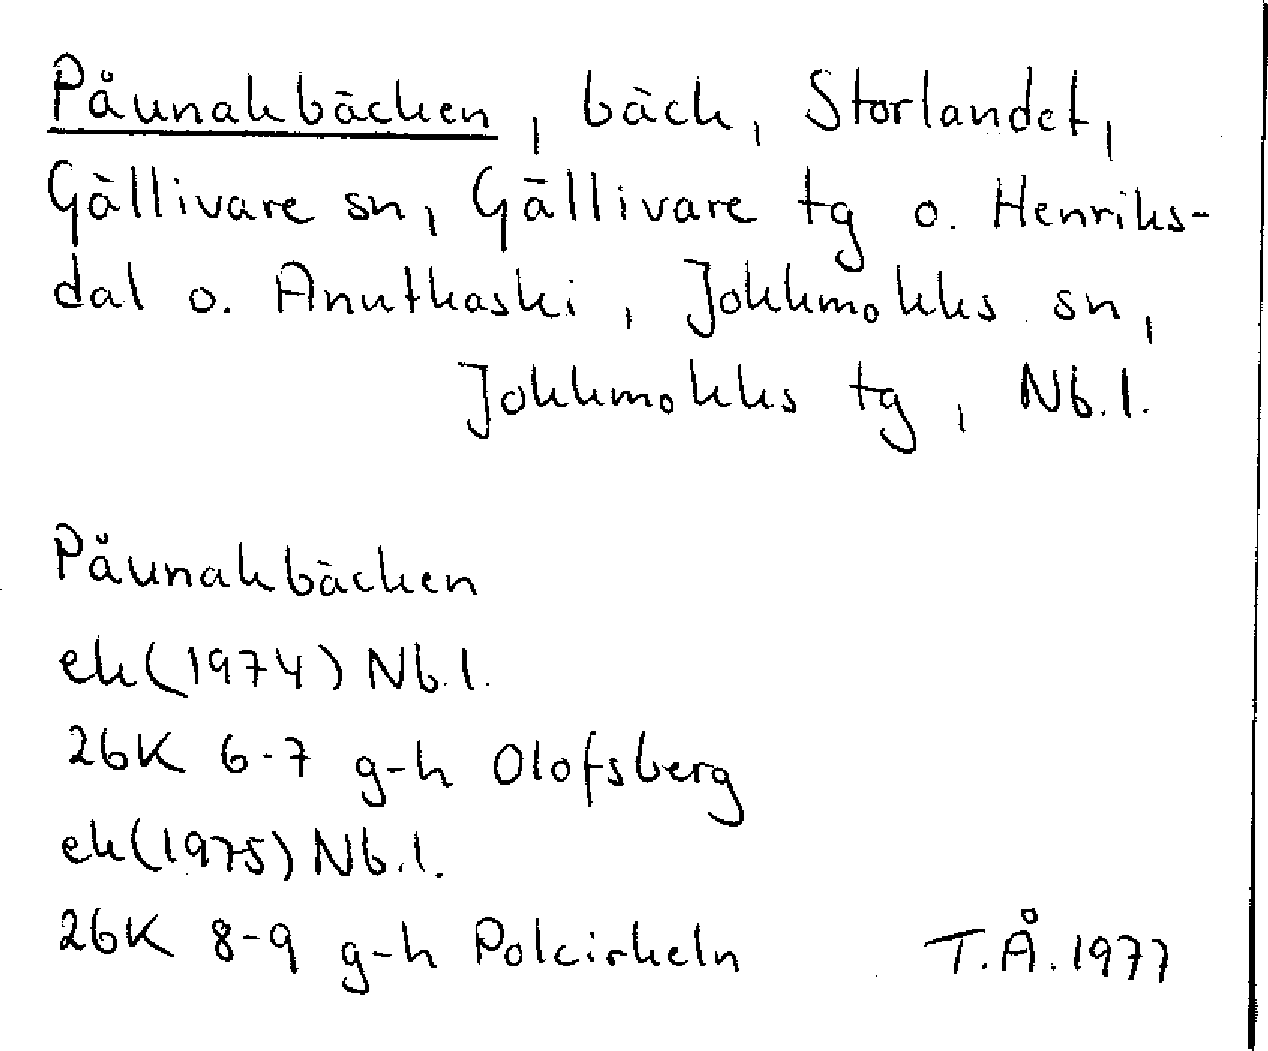 Påunakbäcken, bäck, Storlandet,
Gällivare sn, Gällivare tg o. Henriks-
dal o. Anutkaski, Jokkmokks sn,
Jokkmokks tg, Nb.l.
Påunakbäcken
ek(1974) Nb.l.
26K 6-7 g-h Olofsberg
ek(1975) Nb.l.
26K 8-9 g-h Polcirkeln T.Å.1977